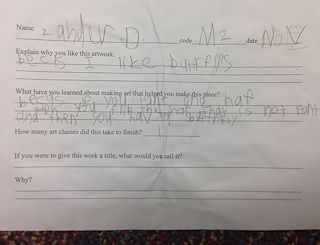 Name zahdur.D. code M2 date Nov
Explain why you like this artwork.
becus I like buttrflys
What have you learned about making art that helped you make this piece?
becus you pant and haf
then you
and then you hav a buttrfly
How many art classes did this take to finish? 1
If you were to give this work a title, what would you call it?
Why?